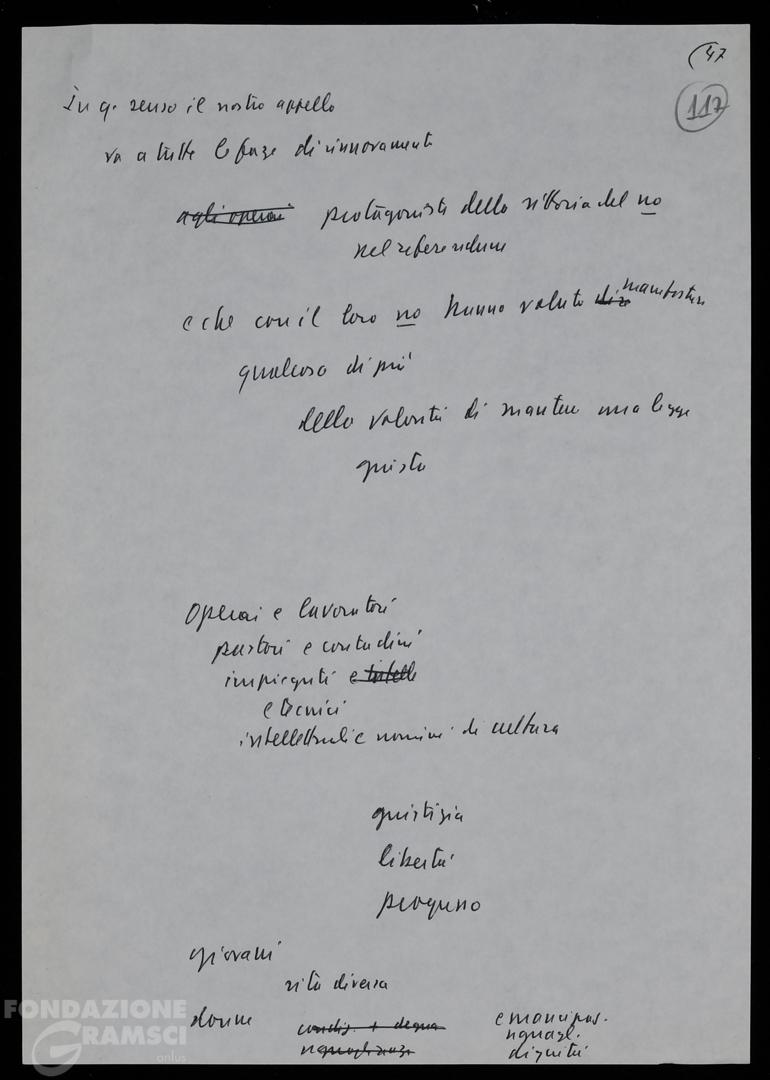 (47
117
In q. senso il nostro appello
va a tutte le forze di rinnovamento
agli operai protagonisti della vittoria del no
nel referendum
e che con il loro no hanno voluto diz manifestare
qualcosa di più
della volontà di mantenere una legge
giusta
Operai e lavoratori
pastori e contadini
impiegati e intelle
e tecnici
intellettuali e uomini di cultura
giustizia
libertà
progresso
giovani
vita diversa
donne condiz. + degna emancipaz.
uguaglianza uguagl.
dignità
FONDAZIONE
GRAMSCI
onlus